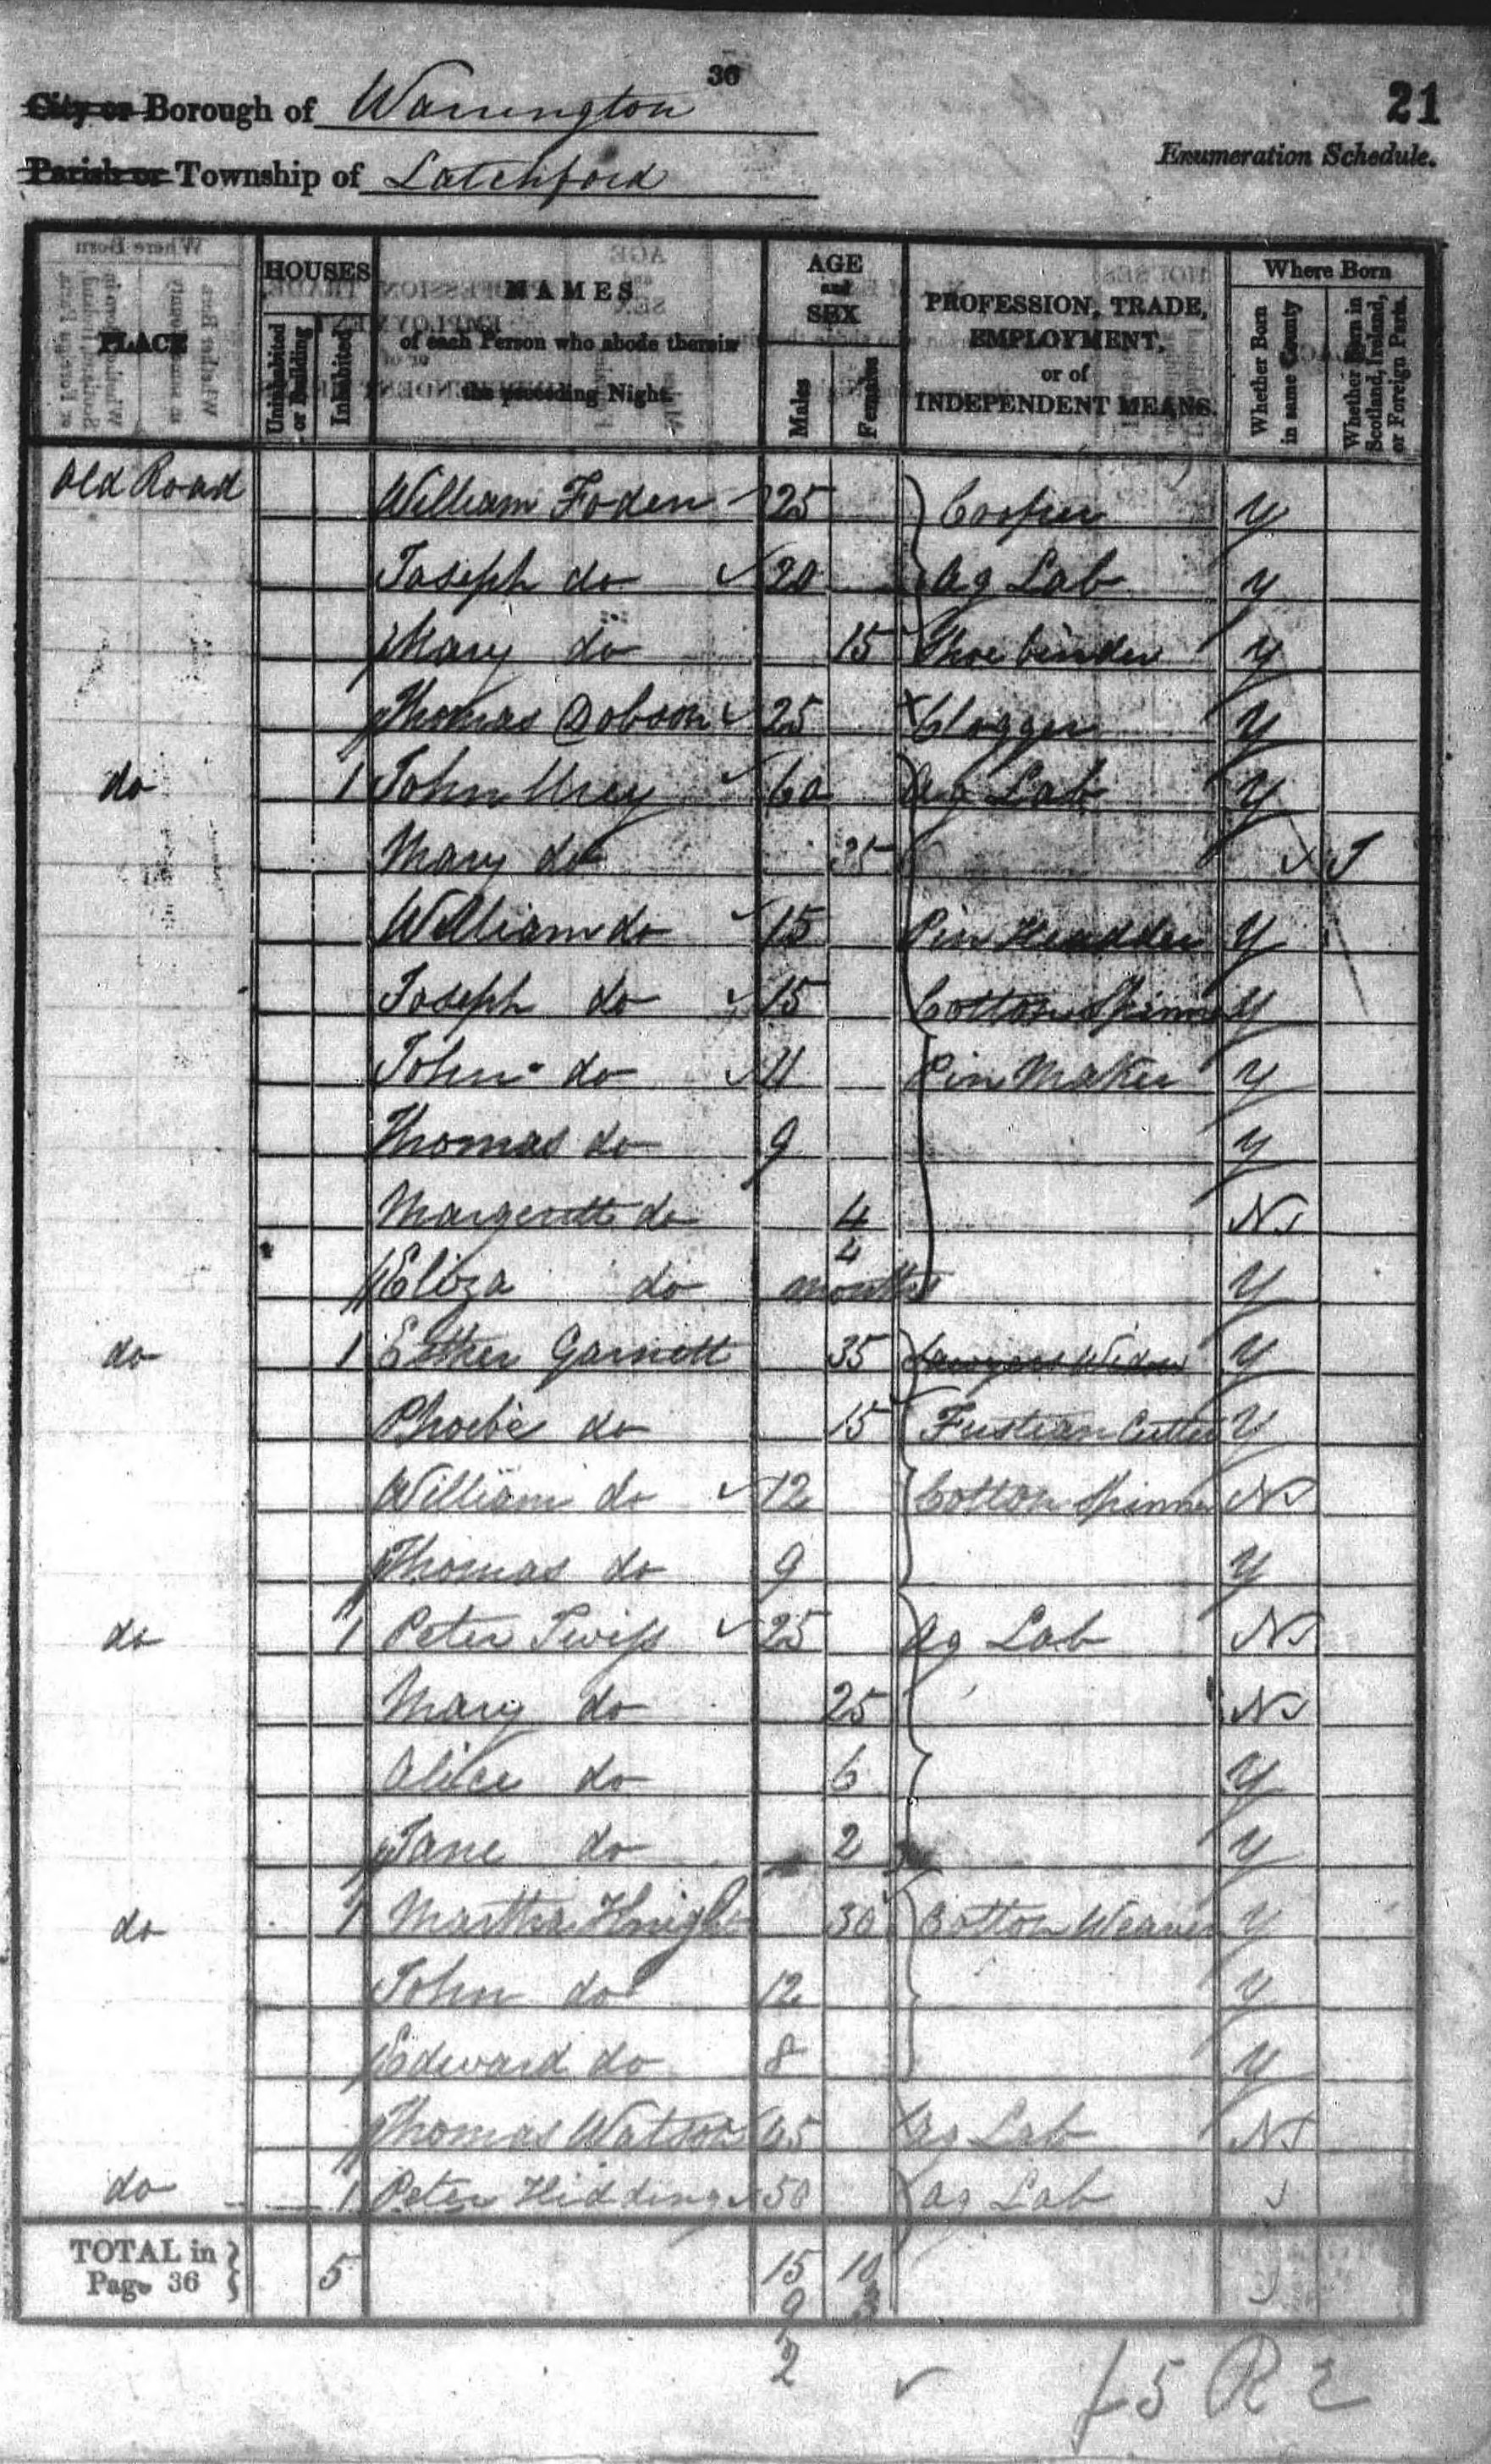 36
21
City or Borough of Warrington
Enumeration Schedule.
Parish or Township of Latchford
PLACE
HOUSES
Uninhabited or Building
Inhabited
NAMES
of each Person who abode therein
the preceding Night.
AGE
and
SEX
Males
Females
PROFESSION, TRADE,
EMPLOYMENT,
or of
INDEPENDENT MEANS.
Where Born
Whether Born in same County
Whether Born in Scotland, Ireland, or Foreign Parts.
Old Road William Foden 25 Cooper Y
Joseph do 20 Ag Lab Y
Mary do 15 Shoe binder Y
Thomas Dobson 25 Clogger Y
do 1 John 60 Ag Lab Y
Mary do
William do 15 Pin Headder Y
Joseph do 15 Cotton Spinner Y
John do 11 Pin Maker Y
Thomas do 9 Y
Margerett do 4 N
Eliza do 4 months Y
do 1 Esther Garnett 35 Sawyers Widow Y
Phoebe do 15 Fustian Cutter Y
William do 12 Cotton Spinner N
Thomas do 9 Y
do 1 Peter Twiss 25 Ag Lab N
Mary do 25 N
Alice do 6 Y
Jane do 2 Y
do 1 Martha Knight 30 Cotton Weaver Y
John do 12 Y
Edward do 8 Y
Thomas Watson Ag Lab N
do 1 Peter Hidding 50 Ag Lab
TOTAL in
Page 36 5 15 10
9 3
2
5 R 2